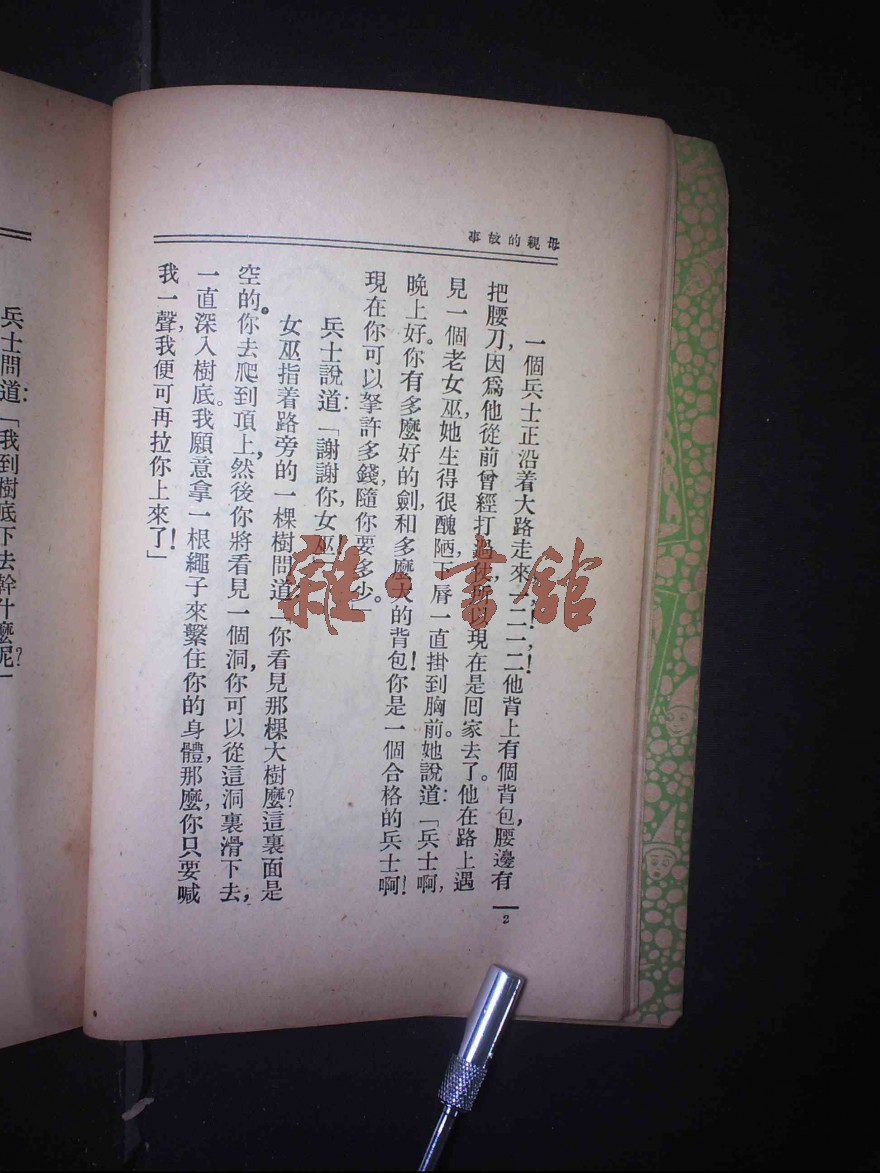 母親的故事
一個兵士正沿着大路走來,一,二!一,二!他背上有個背包,腰邊有
把腰刀,因爲他從前曾經打過仗,所以現在是回家去了。他在路上遇
見一個老女巫,她生得很醜陋,下脣一直掛到胸前。她說道:「兵士啊,
晚上好。你有多麼好的劍,和多麼大的背包!你是一個合格的兵士啊!
現在你可以拏許多錢,隨你要多少。」
兵士說道:「謝謝你,女巫
女巫指着路旁的一棵樹問道:「你看見那棵大樹麼?這裏面是
空的。你去爬到頂上,然後你將看見一個洞,你可以從這洞裏滑下去,
一直深入樹底。我願意拿一根繩子來繫住你的身體,那麼,你只要喊
我一聲,我便可再拉你上來了!」
2
兵士問道:「我到樹底下去幹什麼呢?」
雜·書館